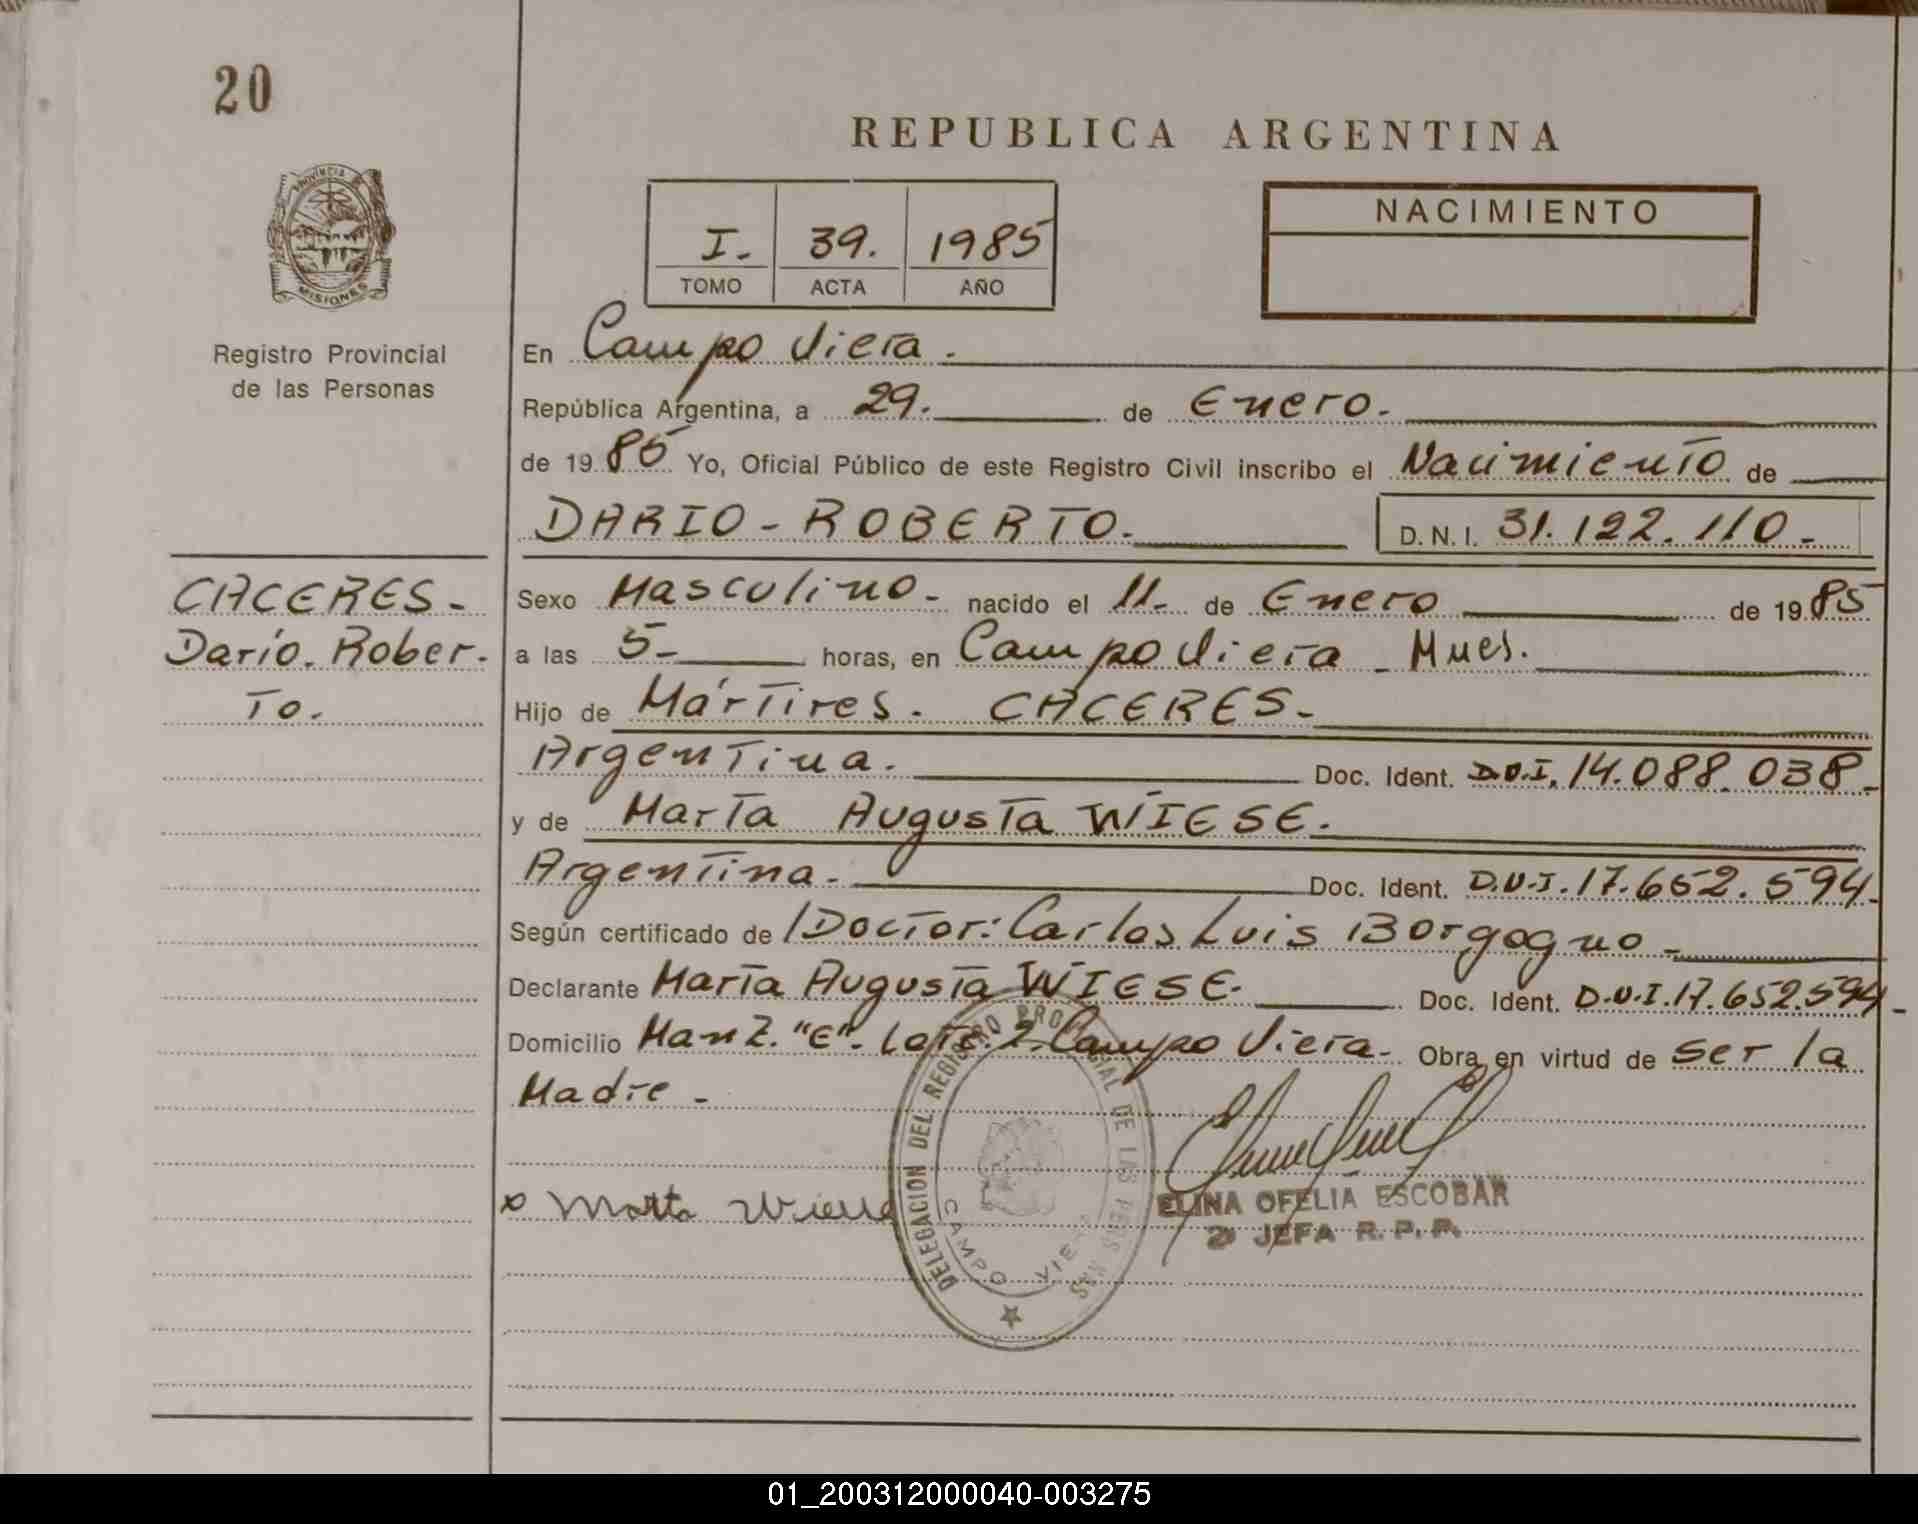 20
REPUBLICA ARGENTINA
PROVINCIA
MISIONES
Registro Provincial
de las Personas
I. 39. 1985
TOMO ACTA AÑO
NACIMIENTO
En Campo Viera.
República Argentina, a 29. de Enero.
de 19 85 Yo, Oficial Público de este Registro Civil inscribo el Nacimiento de
DARIO - ROBERTO. D. N. I. 31.122.110.-
CACERES.-
Darío. Rober-
To.
Sexo Masculino.- nacido el 11.- de Enero de 19 85
a las 5- horas, en Campo Viera - Mnes.
Hijo de Mártires. CACERES.-
Argentina. Doc. Ident. D.N.I. 14.088.038-
y de Marta Augusta WIESE.
Argentina.- Doc. Ident. D.N.I. 17.652.594.-
Según certificado de Doctor: Carlos Luis Borgogno-
Declarante Marta Augusta WIESE.- Doc. Ident. D.N.I. 17.652.594.-
Domicilio Manz. "E". Lote. 2. Campo Viera.- Obra en virtud de ser la
Madre.-
DELEGACION DEL REGISTRO PROVINCIAL DE LAS PERSONAS
CAMPO VIERA
x Marta Wiese
ELINA OFELIA ESCOBAR
JEFA R. P. P.
01_200312000040-003275